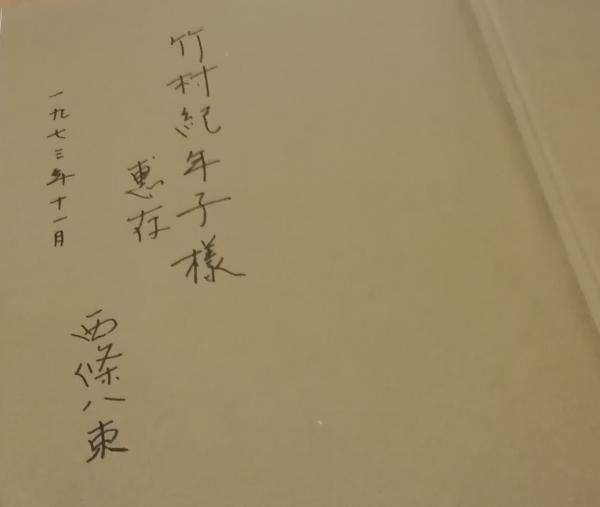 竹村紀年子様
惠存
一九七三年十一月
西條八束